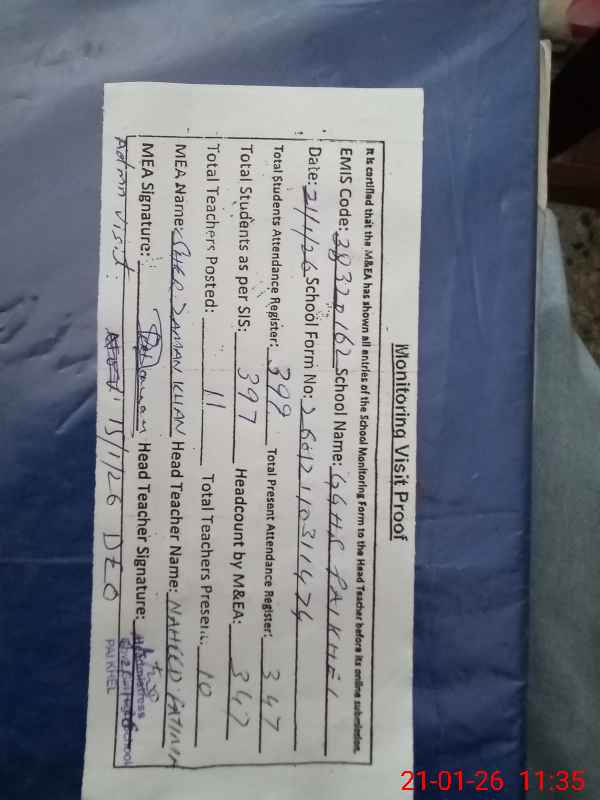 Monitoring Visit Proof
It is certified that the M&EA has shown all entries of the School Monitoring Form to the Head Teacher before its online submission.
EMIS Code: 38320162 School Name: GGHS PAIKHEL
Date: 21/1/26 School Form No:
Total Students Attendance Register: 399 Total Present Attendance Register: 347
Total Students as per SIS: 397 Headcount by M&EA: 347
Total Teachers Posted: 11 Total Teachers Present: 10
MEA Name: SHER ZAMAN KHAN Head Teacher Name: NAHEED FATIMA
MEA Signature: Head Teacher Signature:
Headmistress
Girls High School
PAI KHEL
Admn visit 15/1/26 DEO
21-01-26 11:35